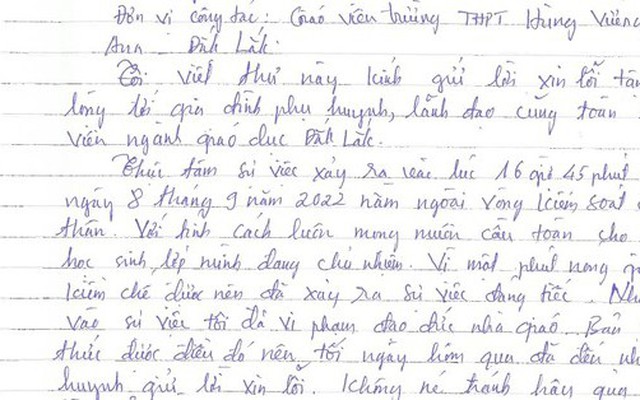 Đơn vị công tác: Giáo viên trường THPT Hùng Vương
Ana - Đăk Lăk.
Tôi viết thư này kính gửi lời xin lỗi
lòng tới gia đình phụ huynh, lãnh đạo cùng toàn
viên ngành giáo dục Đăk Lăk.
Thực tâm sự việc xảy ra vào lúc 16 giờ 45 phút
ngày 8 tháng 9 năm 2022 nằm ngoài vòng kiểm soát
thân. Với tính cách luôn mong muốn cầu toàn cho
học sinh lớp mình đang chủ nhiệm. Vì một phút nóng
kiềm chế được nên đã xảy ra sự việc đáng tiếc.
vào sự việc tôi đã vi phạm đạo đức nhà giáo. Bản
thức được điều đó nên tối ngày hôm qua đã đến
huynh gửi lời xin lỗi. Không né tránh hay